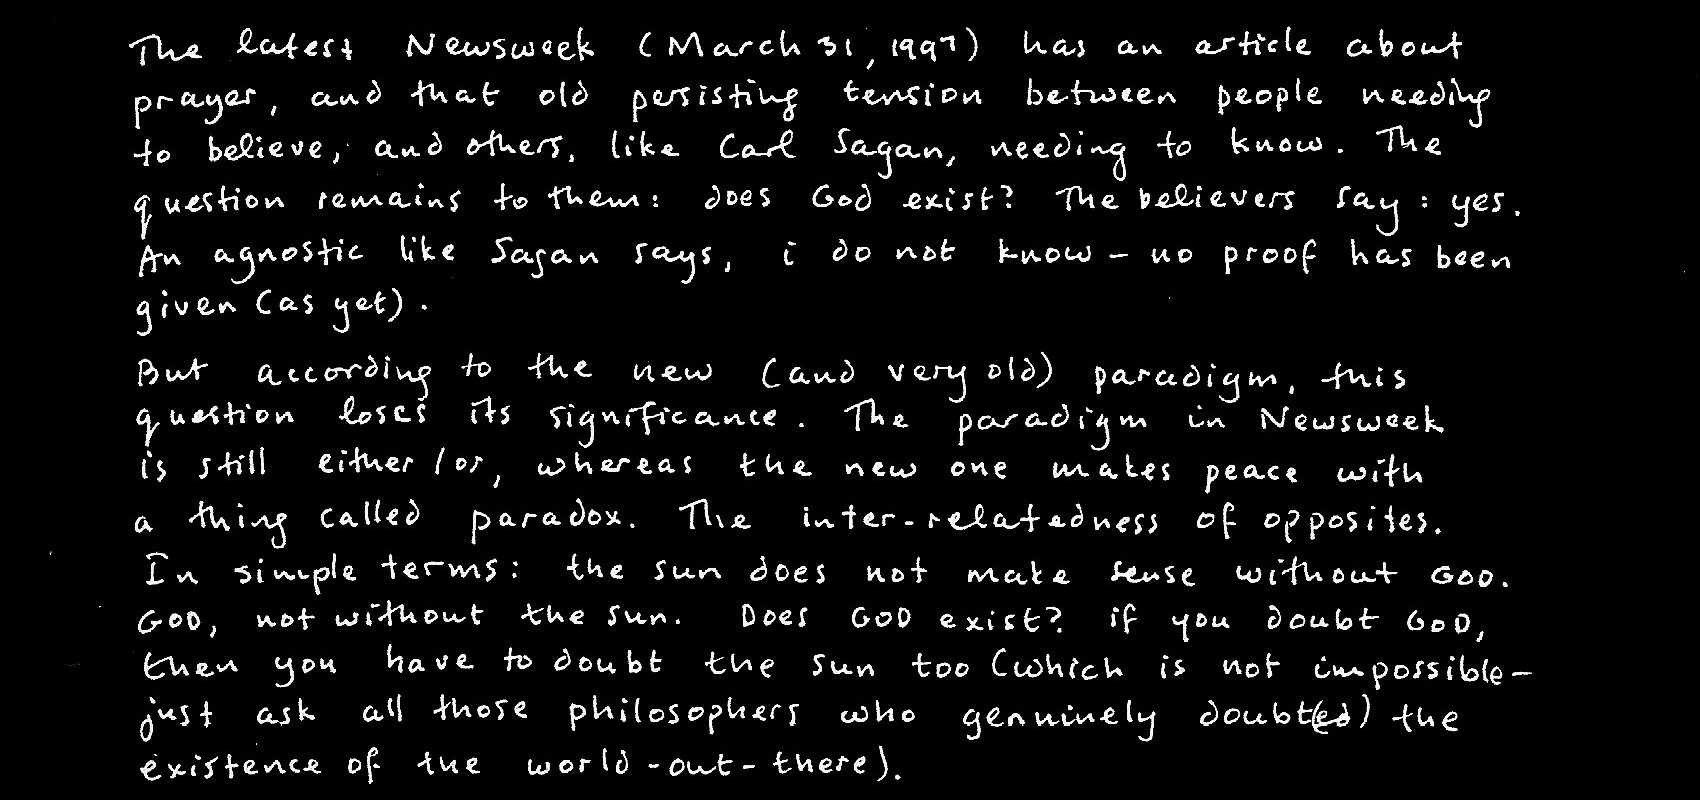 The latest Newsweek (March 31, 1997) has an article about
prayer, and that old persisting tension between people needing
to believe, and others, like Carl Sagan, needing to know. The
question remains to them: does God exist? The believers say: yes.
An agnostic like Sagan says, i do not know - no proof has been
given (as yet).
But according to the new (and very old) paradigm, this
question loses its significance. The paradigm in Newsweek
is still either/or, whereas the new one makes peace with
a thing called paradox. The inter-relatedness of opposites.
In simple terms: the sun does not make sense without GOD.
GOD, not without the sun. Does GOD exist? if you doubt GOD,
then you have to doubt the sun too (which is not impossible -
just ask all those philosophers who genuinely doubt(ed) the
existence of the world-out-there).